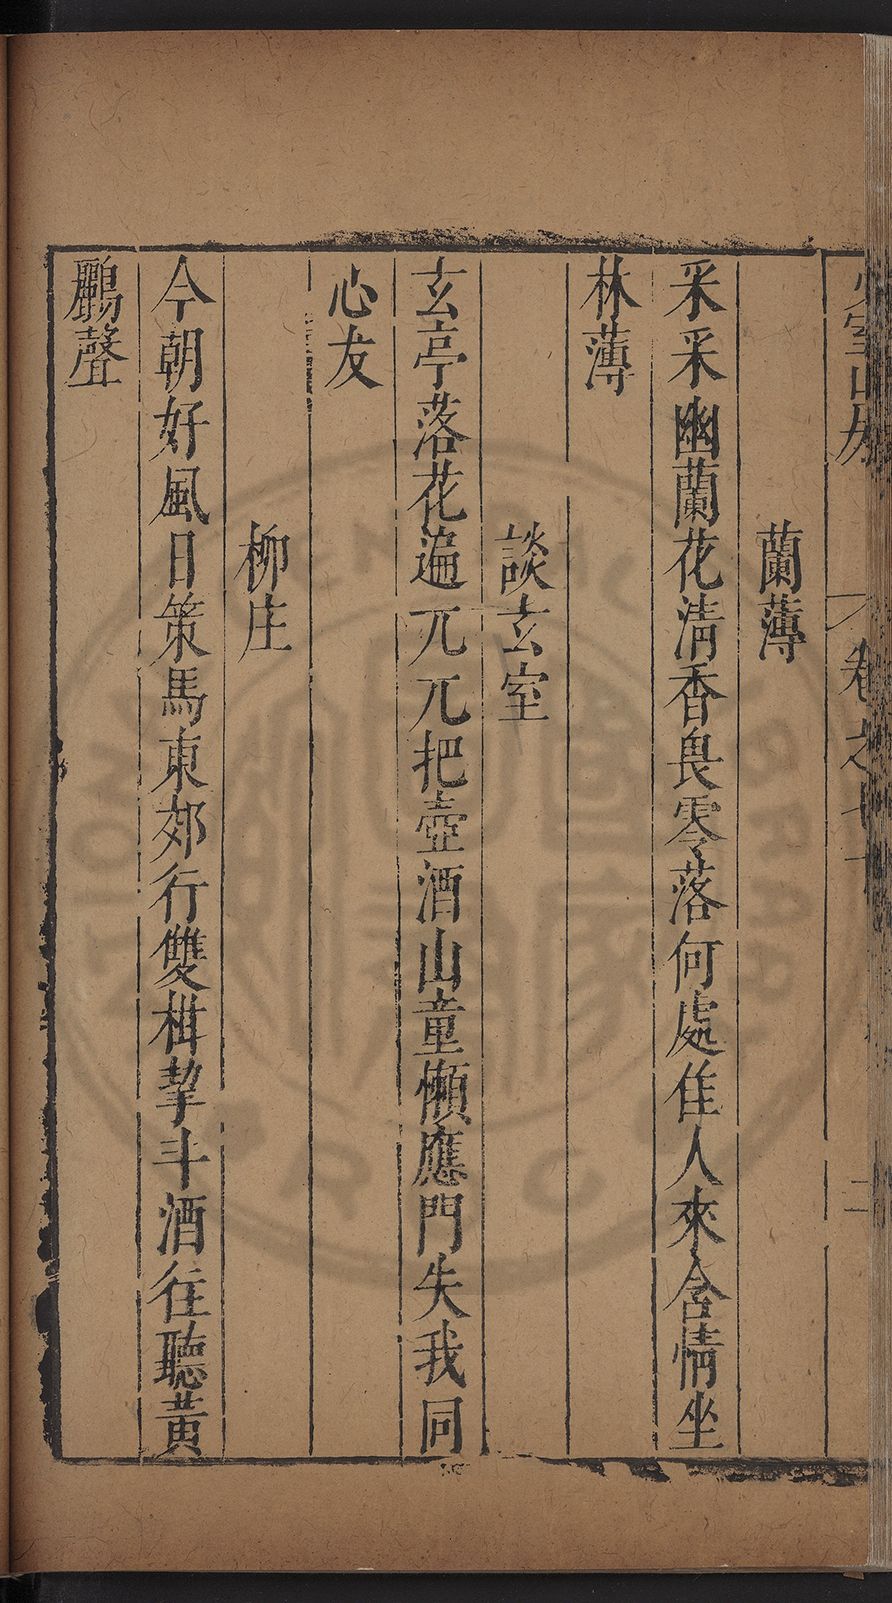 少室山房　卷之七十　二
蘭薄
采采幽蘭花清香畏零落何處隹人來含情坐
林薄
談玄室
玄亭落花遍兀兀把壺酒山童懶應門失我同
心友
柳庄
今朝好風日策馬東郊行雙柑挈斗酒往聽黃
鸝聲